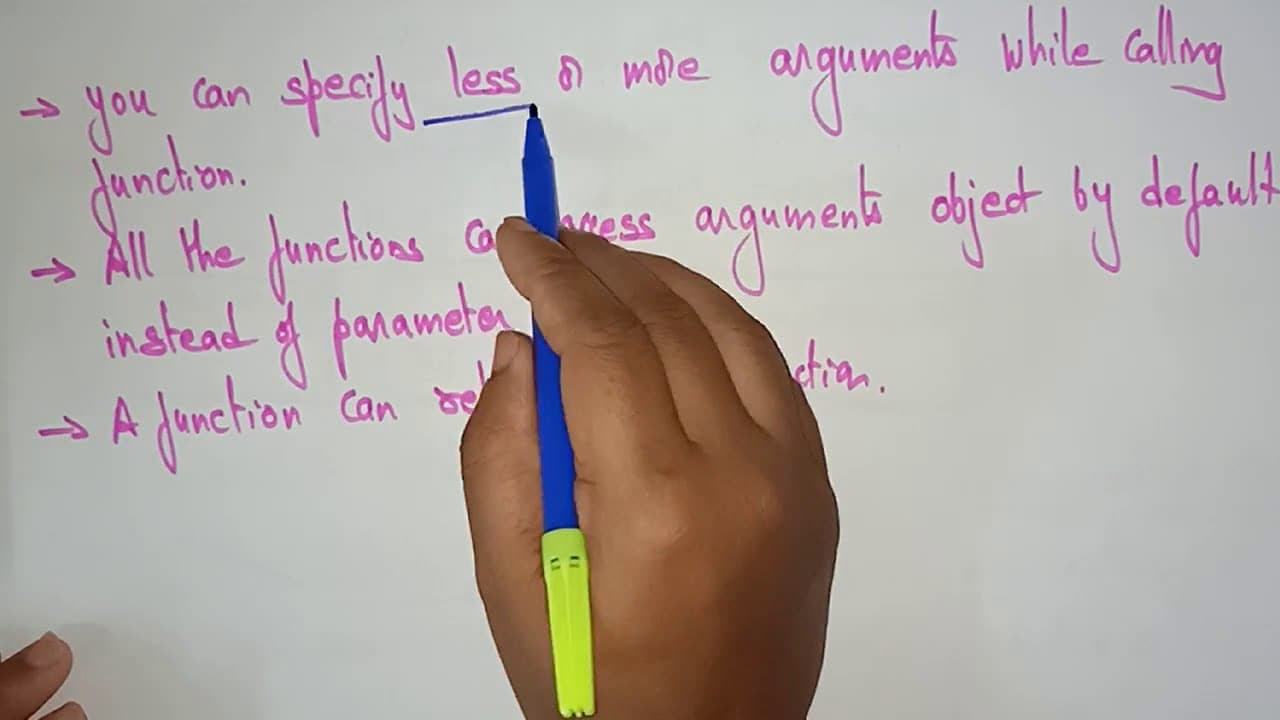 → you can specify less or more arguments while calling
function.
→ All the functions can access arguments object by default
instead of parameter
→ A function can